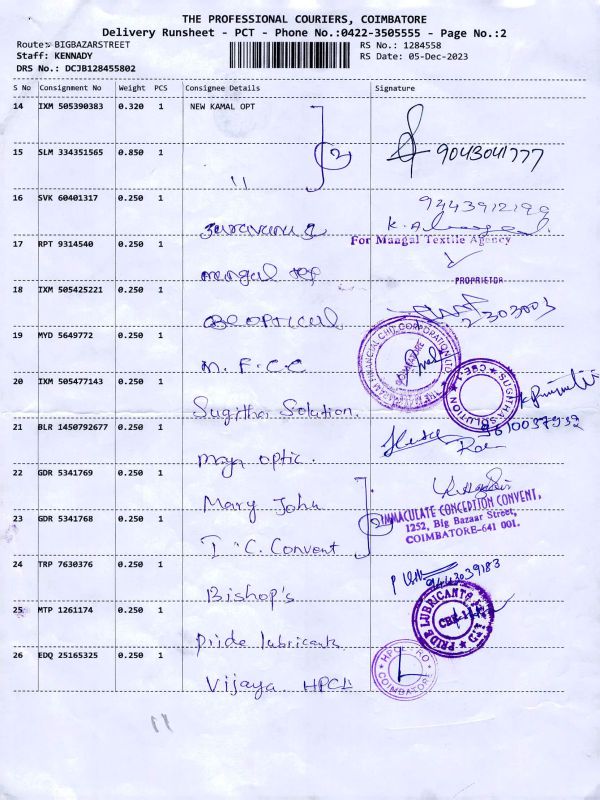 THE PROFESSIONAL COURIERS, COIMBATORE
Delivery Runsheet - PCT - Phone No.:0422-3505555 - Page No.:2
Route: BIGBAZARSTREET RS No.: 1284558
Staff: KENNADY RS Date: 05-Dec-2023
DRS No.: DCJB128455802
S No Consignment No Weight PCS Consignee Details Signature
14 IXM 505390383 0.320 1 NEW KAMAL OPT
2
15 SLM 334351565 0.850 1 9043041777
"
16 SVK 60401317 0.250 1
For Mangal Textile Agency
17 RPT 9314540 0.250 1
mangal tex
PROPRIETOR
18 IXM 505425221 0.250 1
OPTICAL 2303003
19 MYD 5649772 0.250 1
M. F. C. C
20 IXM 505477143 0.250 1
SUGITHA SOLUTION
CBE-1
Sugitha Solution.
21 BLR 1450792677 0.250 1
maya optic.
22 GDR 5341769 0.250 1
Mary John
IMMACULATE CONCEPTION CONVENT,
1252, Big Bazaar Street,
COIMBATORE-641 001.
23 GDR 5341768 0.250 1
2
I. C. Convent
24 TRP 7630376 0.250 1 9443039183
Bishop's
25 MTP 1261174 0.250 1
PRIDE LUBRICANTS
Pride lubricants
26 EDQ 25165325 0.250 1
HPCL RO
COIMBATORE
Vijaya. HPCL
11